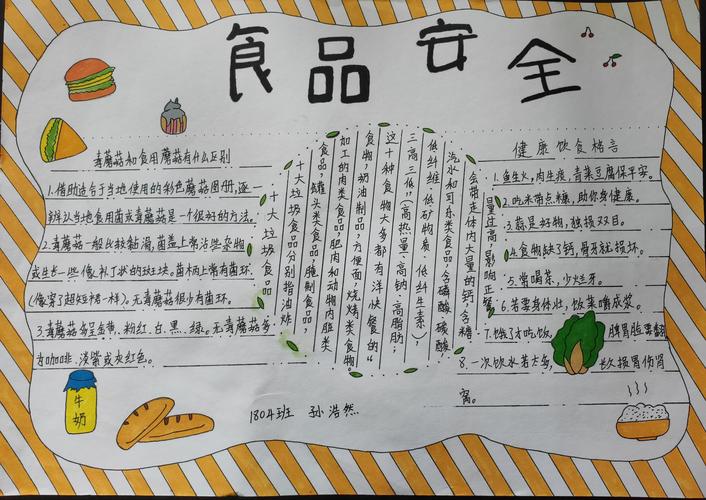 食品安全
毒蘑菇和食用蘑菇有什么区别
1.借助适合于当地使用的彩色蘑菇图册,逐一
辨认当地食用菌或毒蘑菇是一个很好的方法。
2.毒蘑菇一般比较黏滑,菌盖上常沾些杂物
或生长一些像补丁状的斑块。菌柄上常有菌环
(像穿了超短裙一样)。无毒蘑菇很少有菌环。
3.毒蘑菇多呈金黄、粉红、白、黑、绿。无毒蘑菇多
为咖啡、淡紫或灰红色。
十大垃圾食品
十大垃圾食品分别指油炸
食品,罐头类食品,腌制食品,
加工的肉类食品,肥肉和动物内脏类
食物,奶油制品,方便面,烧烤类食物。
这十种食物大多都有洋快餐的“
三高三低”(高热量、高钠、高脂肪;
低纤维、低矿物质、低纤生素)
汽水和可乐类食品,含磷酸、碳酸,
会带走体内大量的钙,含糖
量过高,影响正餐
健康饮食格言
1.鱼生火,肉生痰,青菜豆腐保平安。
2.吃米带点糠,助你身健康。
3.蒜是好物,独损双目。
4.食物缺了钙,骨牙就损坏。
5.常喝茶,少烂牙。
6.若要身体壮,饭菜嚼成浆。
7.饿了才吃饭,脾胃脏
8.一次饮水若太多,长久损胃伤肾
窝。
牛奶
1804班 孙浩然